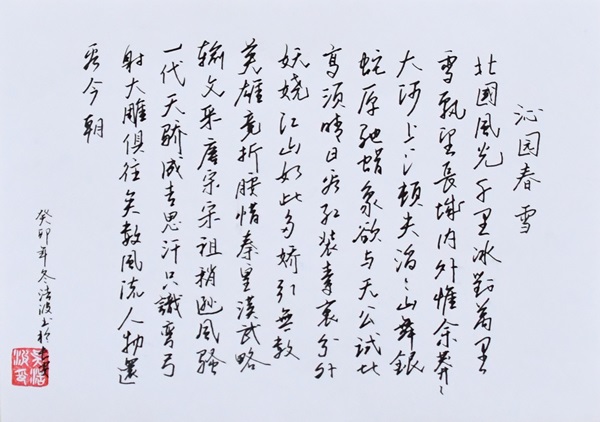 沁园春 雪
北國風光千里冰封萬里
雪飘望長城内外惟余莽〻
大河上下頓失滔〻山舞銀
蛇原馳蜡象欲与天公試比
高須晴日看红装素裹分外
妖娆江山如此多嬌引無数
英雄竟折腰惜秦皇漢武略
输文采唐宗宋祖稍逊風騷
一代天骄成吉思汗只識彎弓
射大雕俱往矣数風流人物還
看今朝
癸卯年冬浩波书於